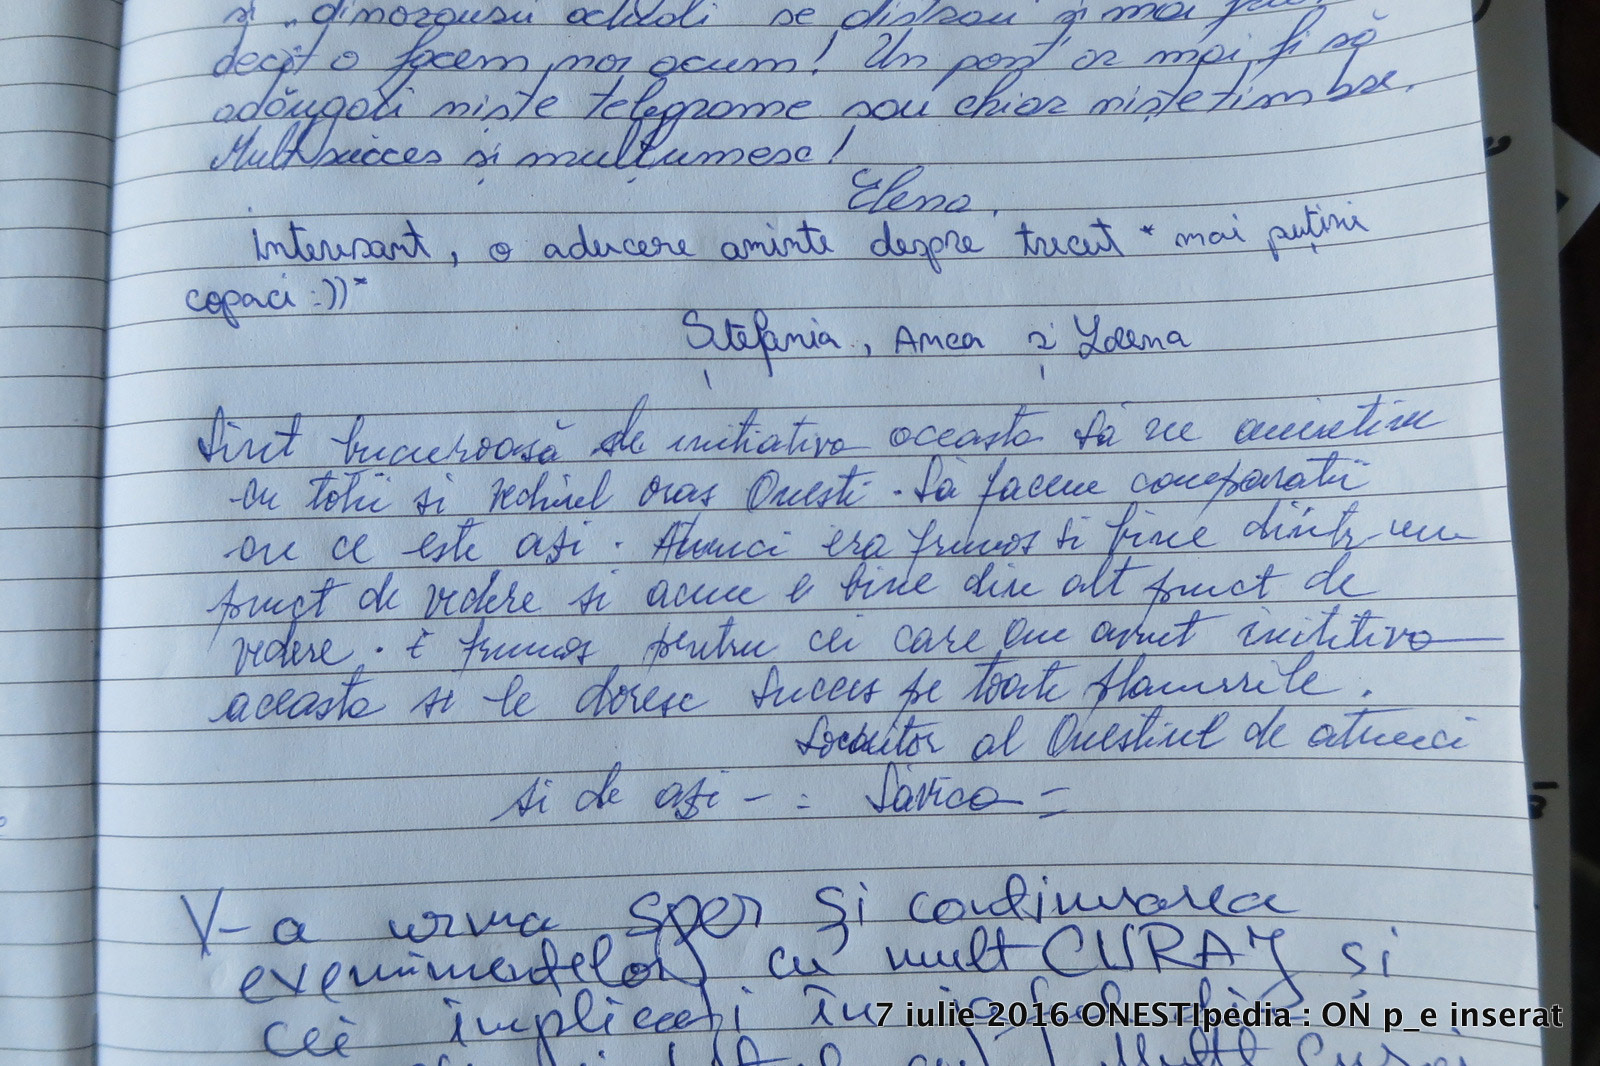 și "dinozauri
decît o facem noi acum! Un pont ar mai fi să
adăugați niște telegrame sau chiar niște timbre.
Mult succes și mulțumesc!
Elena.
Interesant, o aducere aminte despre trecut * mai puțini
copaci :))*
Ștefania, Anca și Lorena
Sînt bucuroasă de initiativa aceasta să ne amintim
cu totii si vechiul oras Onesti. Să facem comparatii
cu ce este azi. Atunci era frumos si bine dintr-un
punct de vedere si acum e bine din alt punct de
vedere. E frumos pentru cei care au avut inititiva
aceasta si le doresc succes pe toate planurile.
Locuitor al Onestiul de atunci
si de azi - = Săvica =
V-a urma sper și continuarea
evenimentelor cu mult CURAJ și
cei implicați în
7 iulie 2016 ONESTIpedia : ON p_e inserat